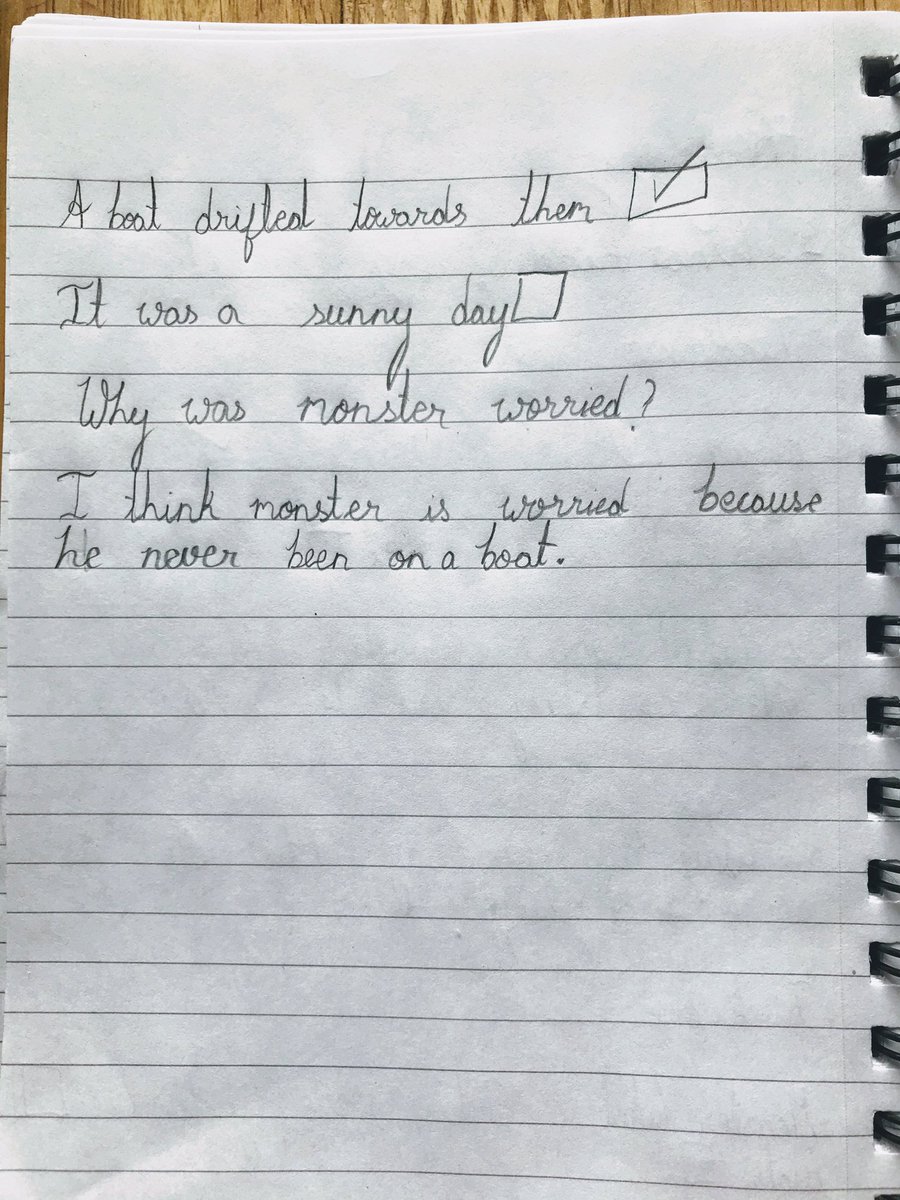 A boat drifted towards them ☑
It was a sunny day ☐
Why was monster worried?
I think monster is worried because
he never been on a boat.